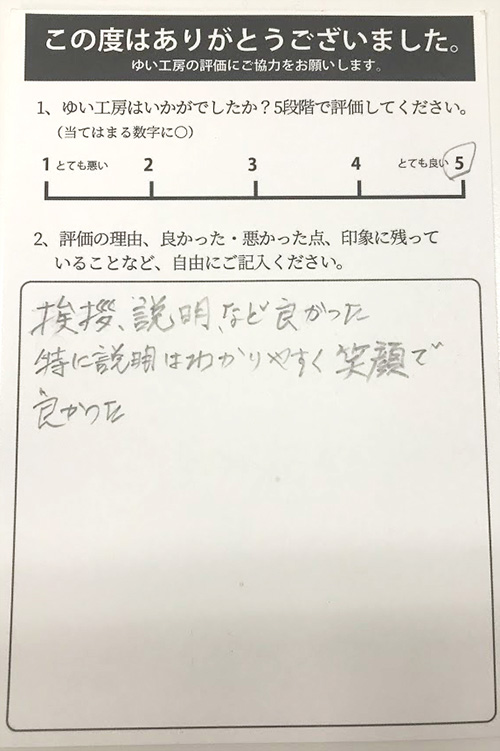 この度はありがとうございました。
ゆい工房の評価にご協力をお願いします。
1、ゆい工房はいかがでしたか？5段階で評価してください。
（当てはまる数字に○）
1 とても悪い 2 3 4 とても良い 5
2、評価の理由、良かった・悪かった点、印象に残って
いることなど、自由にご記入ください。
挨拶、説明、など良かった
特に説明はわかりやすく笑顔で
良かった